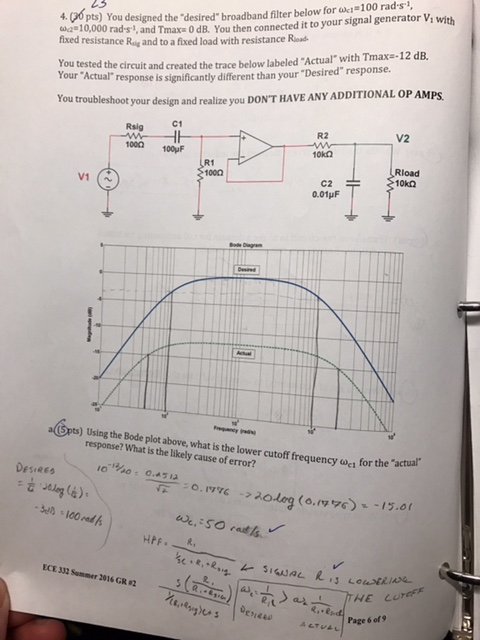 25
4. (30 pts) You designed the "desired" broadband filter below for ωc1=100 rad·s⁻¹,
ωc2=10,000 rad·s⁻¹, and Tmax= 0 dB. You then connected it to your signal generator V1 with
fixed resistance Rsig and to a fixed load with resistance Rload.
You tested the circuit and created the trace below labeled "Actual" with Tmax=-12 dB.
Your "Actual" response is significantly different than your "Desired" response.
You troubleshoot your design and realize you DON'T HAVE ANY ADDITIONAL OP AMPS.
Rsig
100Ω
C1
100µF
R1
100Ω
V1
R2
10kΩ
C2
0.01µF
V2
Rload
10kΩ
Bode Diagram
Desired
Actual
Magnitude (dB)
Frequency (rad/s)
a. (5pts) Using the Bode plot above, what is the lower cutoff frequency ωc1 for the "actual"
response? What is the likely cause of error?
DESIRED
= 20log(
-3dB = 100 rad/s
10^-12/20 = 0.2512
/√2 = 0.1776 -> 20log(0.1776) = -15.01
ωc1 = 50 rad/s ✓
HPF = R1
1/sC + R1 + Rsig
SIGNAL R IS LOWERING
THE CUTOFF
S (R1/R1+Rsig)
1/(R1+Rsig)C + S
DESIRED
ACTUAL
ECE 332 Summer 2016 GR #2
Page 6 of 9